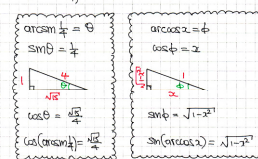 arcsin 1/4 = θ
sinθ = 1/4
1
4
θ
√15
cosθ = √15/4
cos(arcsin 1/4) = √15/4
arccosx = ϕ
cosϕ = x
1
ϕ
x
sinϕ = √1-x²
sin(arccosx) = √1-x²